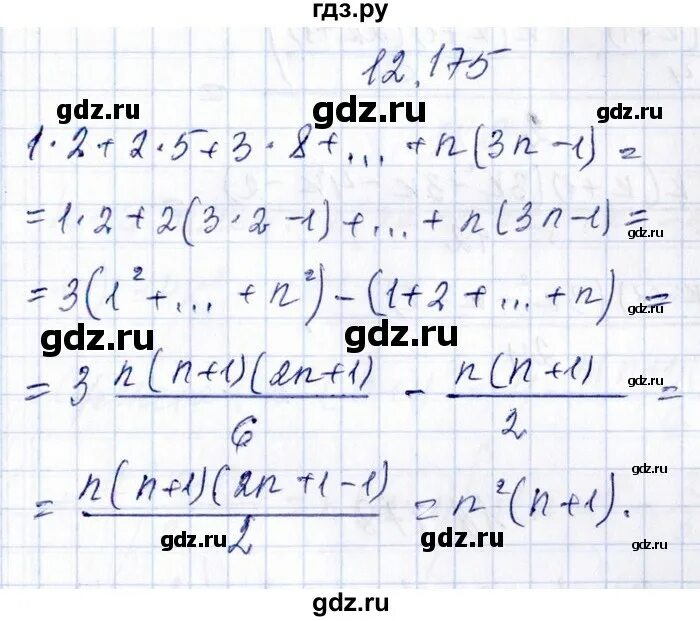 гдз.ру
12.175
gdz.ru gdz.ru gdz.ru
1·2+2·5+3·8+...+n(3n-1)=
=1·2+2(3·2-1)+...+n(3n-1)=
gdz.ru
=3(1²+...+n²)-(1+2+...+n)=
gdz.ru gdz.ru gdz.ru
=3 n(n+1)(2n+1)/6 - n(n+1)/2 =
gdz.ru
=n(n+1)(2n+1-1)/2=n²(n+1).
gdz.ru
gdz.ru gdz.ru gdz.ru
gdz.ru